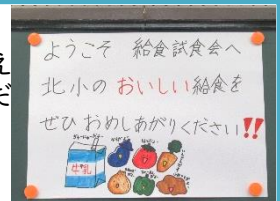 ようこそ 給食試食会へ
北小の おいしい給食を
ぜひ おめしあがりください!!
牛乳